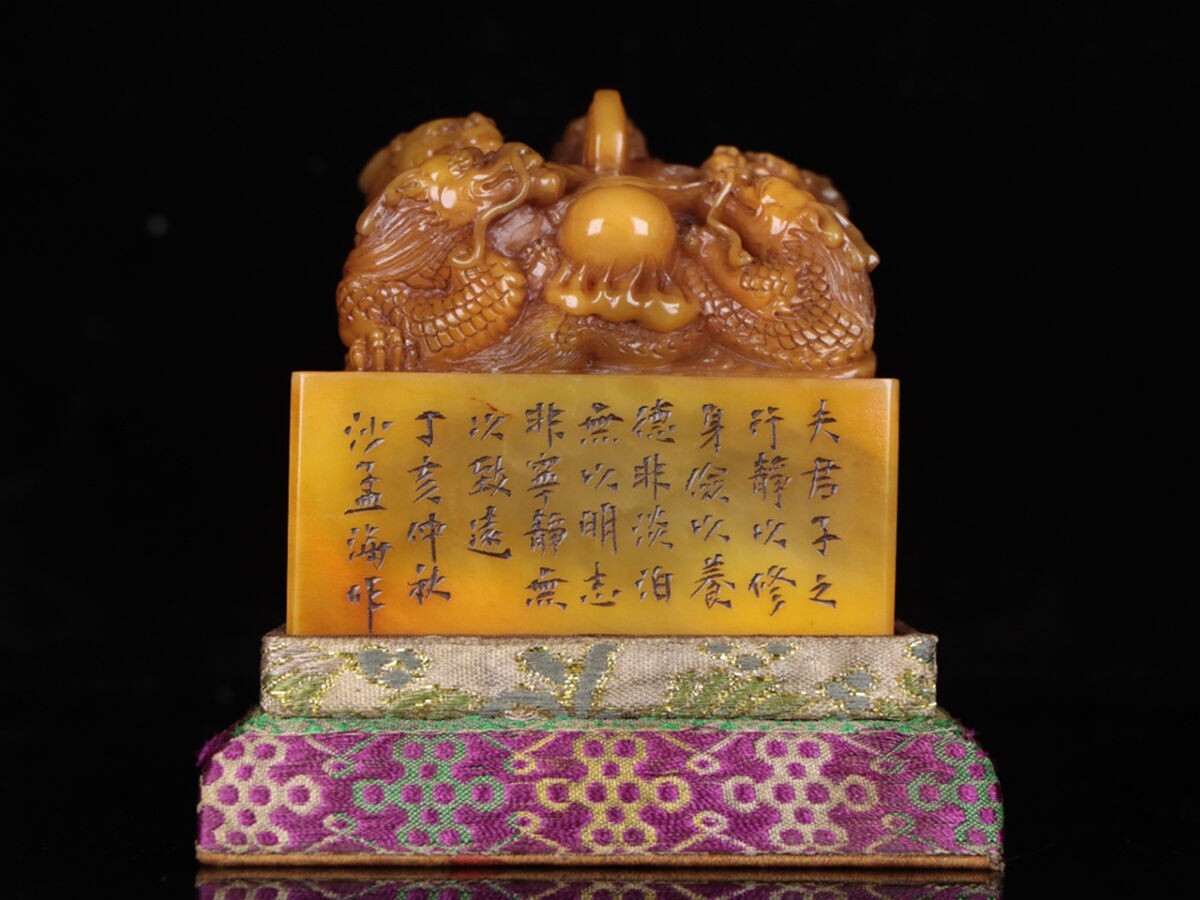 夫君子之
行静以修
身儉以養
德非淡泊
無以明志
非寧静無
以致遠
丁亥仲秋
沙孟海作